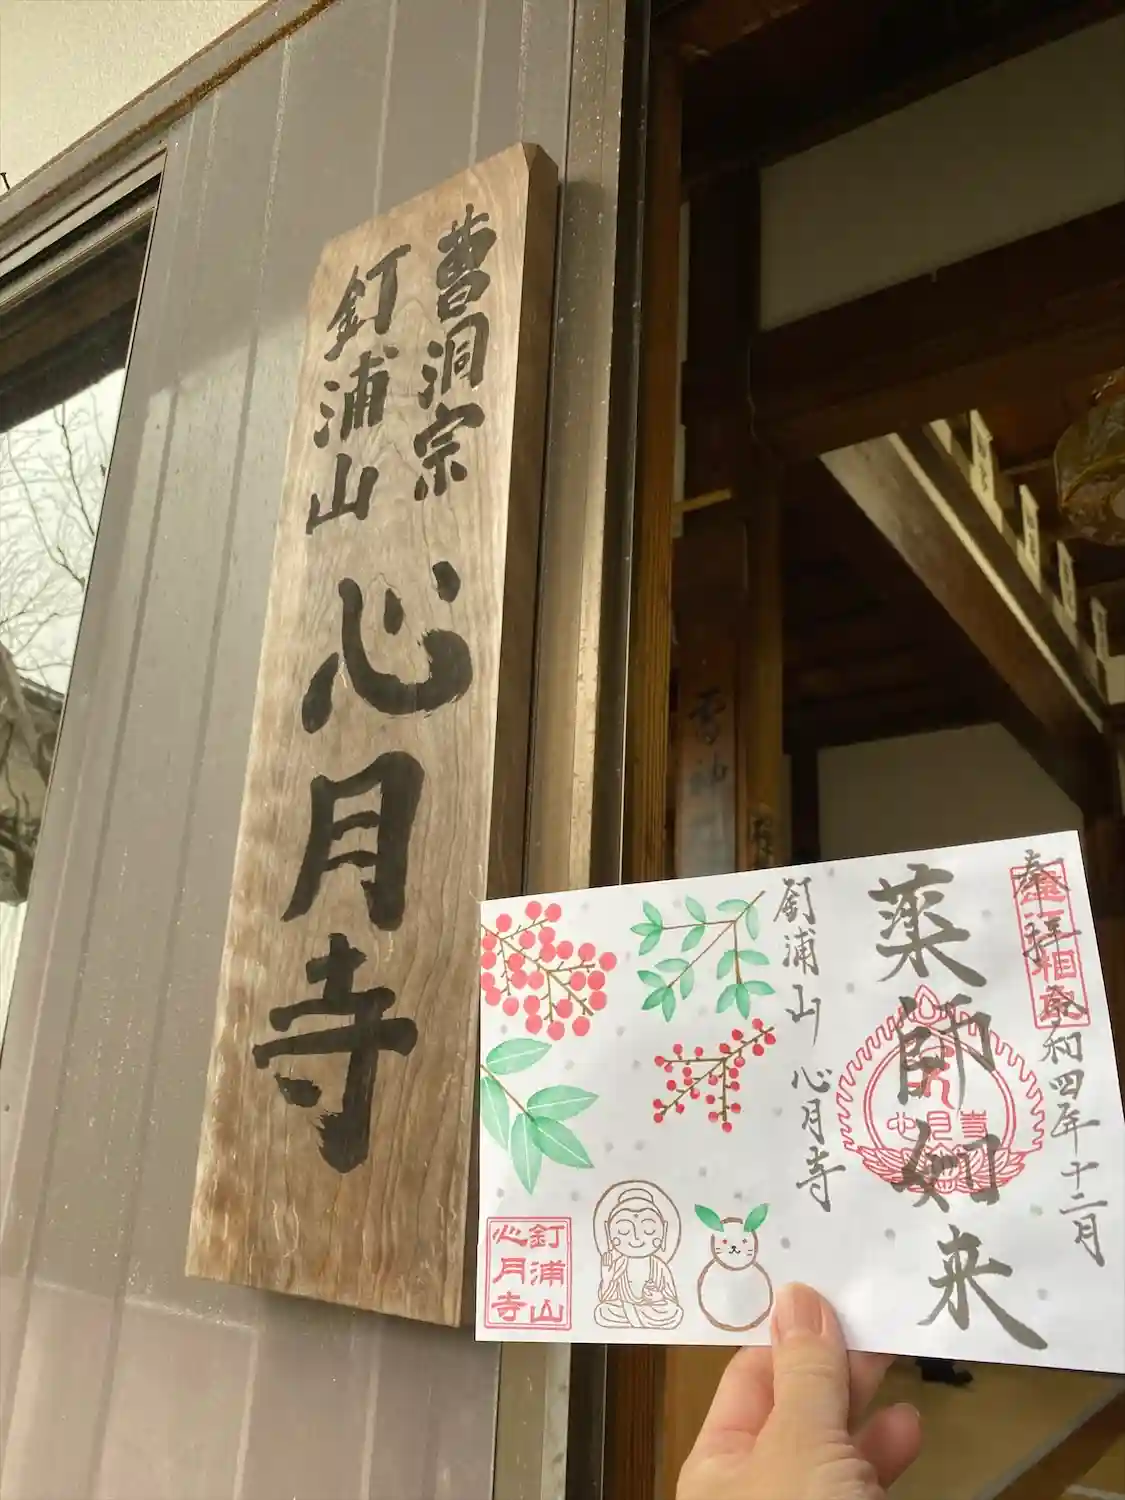 曹洞宗
釘浦山
心月寺
雷神
奉拝
令和四年十二月
薬師如来
心月寺
釘浦山 心月寺
釘浦山
心月寺